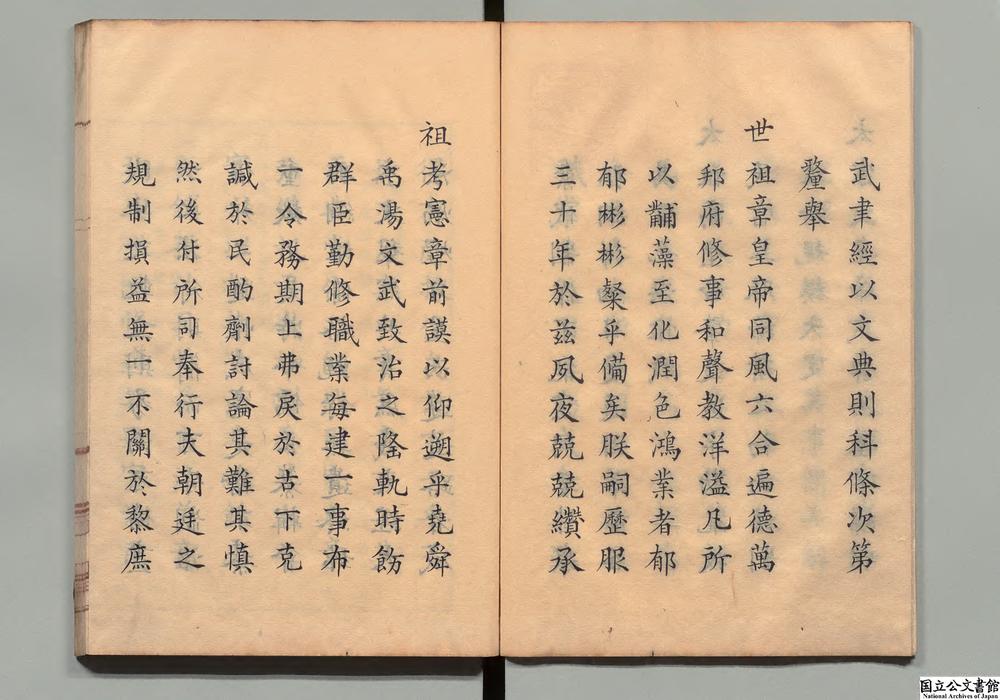 武聿經以文典則科條次第
釐舉
世祖章皇帝同風六合遍德萬
邦府修事和聲教洋溢凡所
以黼藻至化潤色鴻業者郁
郁彬彬粲乎備矣朕嗣歷服
三十年於兹夙夜兢兢纘承
祖考憲章前謨以仰遡乎堯舜
禹湯文武致治之隆軌時飭
群臣勤修職業每建一事布
一令務期上弗戾於古下克
諴於民酌劑討論其難其慎
然後付所司奉行夫朝廷之
規制損益無一不關於黎庶
国立公文書館
National Archives of Japan